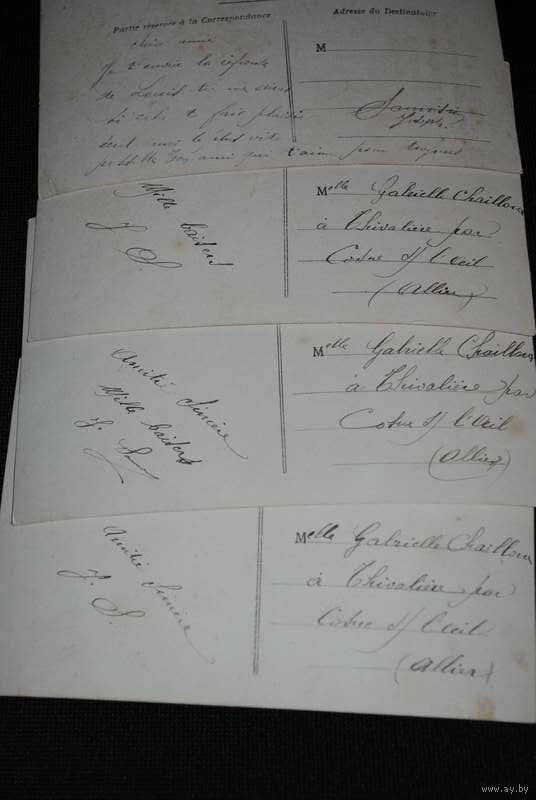 Partie réservée à la Correspondance
Adresse du Destinataire
M
cher ami
Je t'envoie la réponse
de
si cela te fais plaisir
écrit moi le plus vite
possible ton ami qui t'aime pour toujours
Joseph
Mille baisers
J. S.
Melle Gabrielle Chailloux
à Thivalière par
Cosne s/ l'oeil
(Allier)
Amitié Sincère
Mille baisers
J. S
Melle Gabrielle Chailloux
à Thivalière par
Cosne s/ l'oeil
(Allier)
Amitié Sincère
J. S.
Melle Gabrielle Chailloux
à Thivalière par
Cosne s/ l'oeil
(Allier)
www.ay.by